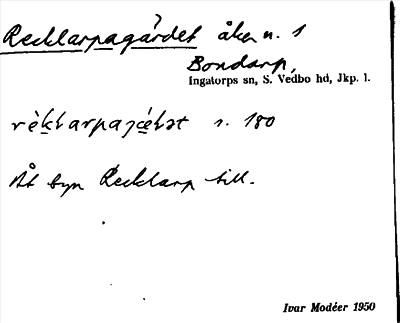 Recklarpagärdet åker n. 1
Bondarp,
Ingatorps sn, S. Vedbo hd, Jkp. l.
s. 180
Åt byn Recklarp till.
Ivar Modéer 1950